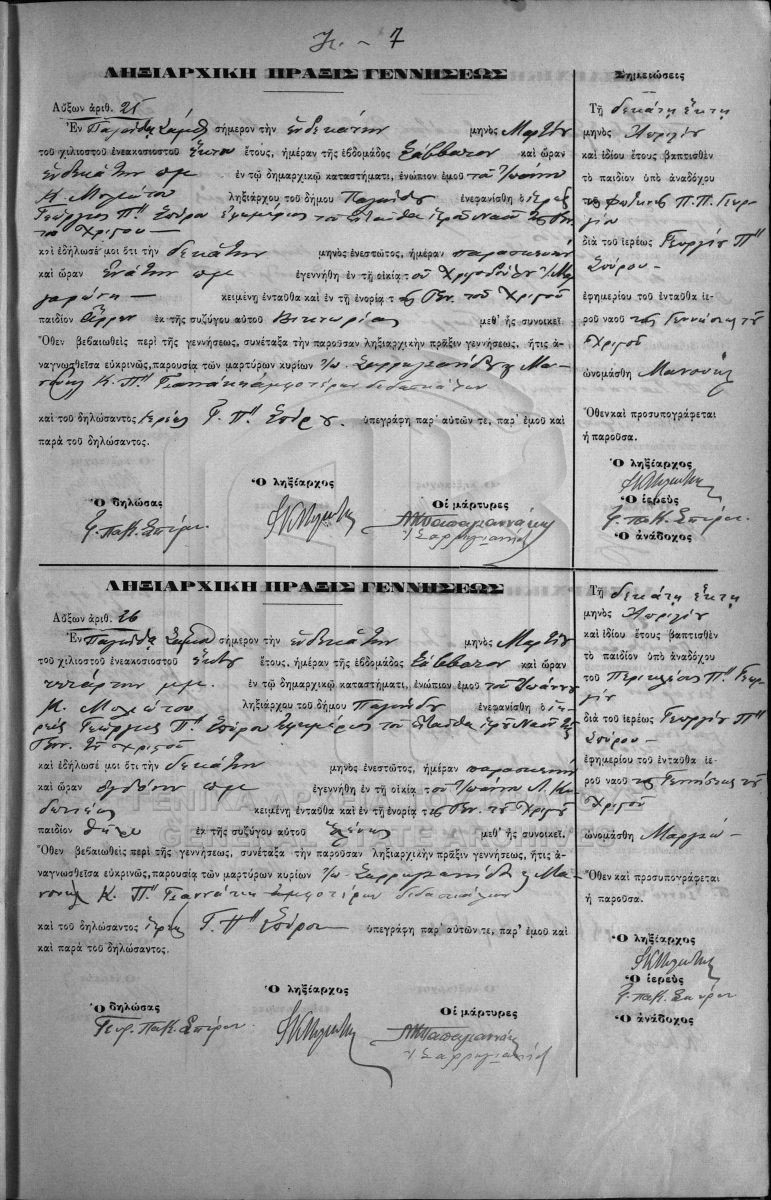 7
ΛΗΞΙΑΡΧΙΚΗ ΠΡΑΞΙΣ ΓΕΝΝΗΣΕΩΣ
Αὔξων ἀριθ. 25
Ἐν Παγώνδᾳ Σάμου σήμερον τὴν ἑνδεκάτην μηνὸς Μαρτίου
τοῦ χιλιοστοῦ ἐνεακοσιοστοῦ ἕκτου ἔτους, ἡμέραν τῆς ἑβδομάδος Σάββατον καὶ ὥραν
ἑνδεκάτην πμ ἐν τῷ δημαρχικῷ καταστήματι, ἐνώπιον ἐμοῦ τοῦ Ἰωάννου
Κ. ληξιάρχου τοῦ δήμου Παγώνδου ἐνεφανίσθη ὁ ἱερεὺς
Γεώργιος Πˮ Σπύρου ἐφημέριος τοῦ ἐνταῦθα ἱεροῦ Ναοῦ τῆς Γεν.
τοῦ Χριστοῦ
καὶ ἐδήλωσέ μοι ὅτι τὴν δεκάτην μηνὸς ἐνεστῶτος, ἡμέραν παρασκευὴν
καὶ ὥραν ἐνάτην πμ ἐγεννήθη ἐν τῇ οἰκίᾳ τοῦ Χριστοδούλου
κειμένη ἐνταῦθα καὶ ἐν τῇ ἐνορίᾳ τῆς Γεν. τοῦ Χριστοῦ
παιδίον ἄρρεν ἐκ τῆς συζύγου αὐτοῦ Βικτωρίας μεθ' ἧς συνοικεῖ.
Ὅθεν βεβαιωθεὶς περὶ τῆς γεννήσεως, συνέταξα τὴν παροῦσαν ληξιαρχικὴν πρᾶξιν γεννήσεως, ἥτις ἀ-
ναγνωσθεῖσα εὐκρινῶς, παρουσίᾳ τῶν μαρτύρων κυρίων Ἰω. Σαρρηγιαννίδη & Μα-
νουὴλ Κ. Πˮ Γιαννάκη ἀμφοτέρων διδασκάλων
καὶ τοῦ δηλώσαντος ἱερέως Γ. Πˮ Σπύρου. ὑπεγράφη παρ' αὐτῶν τε, παρ' ἐμοῦ καὶ
παρὰ τοῦ δηλώσαντος.
Ὁ ληξίαρχος
Ὁ δηλώσας
Οἱ μάρτυρες
Γ. παπ. Σπύρου
Μ Κ Παπαγιαννάκης
Ἰ Σαρρηγιαννίδης
Σημειώσεις
Τῇ δεκάτῃ ἕκτῃ
μηνὸς Ἀπριλίου
καὶ ἰδίου ἔτους βαπτισθὲν
τὸ παιδίον ὑπὸ ἀναδόχου
τῆς Φωτεινῆς Π. Π. Γεωρ-
γίου
διὰ τοῦ ἱερέως Γεωργίου Πˮ
Σπύρου
ἐφημερίου τοῦ ἐνταῦθα ἱε-
ροῦ ναοῦ τῆς Γεννήσεως τοῦ
Χριστοῦ
ὠνομάσθη Μανουὴλ
Ὅθεν καὶ προσυπογράφεται
ἡ παροῦσα.
Ὁ ληξίαρχος
Ὁ ἱερεὺς
Γ. παπ. Σπύρου
Ὁ ἀνάδοχος
ΛΗΞΙΑΡΧΙΚΗ ΠΡΑΞΙΣ ΓΕΝΝΗΣΕΩΣ
Αὔξων ἀριθ. 26
Ἐν Παγώνδᾳ Σάμου σήμερον τὴν ἑνδεκάτην μηνὸς Μαρτίου
τοῦ χιλιοστοῦ ἐνεακοσιοστοῦ ἕκτου ἔτους, ἡμέραν τῆς ἑβδομάδος Σάββατον καὶ ὥραν
τετάρτην μμ. ἐν τῷ δημαρχικῷ καταστήματι, ἐνώπιον ἐμοῦ τοῦ Ἰωάννου
Κ. ληξιάρχου τοῦ δήμου Παγώνδου ἐνεφανίσθη ὁ ἱε-
ρεὺς Γεώργιος Πˮ Σπύρου ἐφημέριος τοῦ ἐνταῦθα ἱεροῦ Ναοῦ τῆς
Γεν. τοῦ Χριστοῦ
καὶ ἐδήλωσέ μοι ὅτι τὴν δεκάτην μηνὸς ἐνεστῶτος, ἡμέραν παρασκευὴν
καὶ ὥραν ὀγδόην πμ ἐγεννήθη ἐν τῇ οἰκίᾳ τοῦ Ἰωάννου Λ.
κειμένη ἐνταῦθα καὶ ἐν τῇ ἐνορίᾳ τῆς Γεν. τοῦ Χριστοῦ
παιδίον θῆλυ ἐκ τῆς συζύγου αὐτοῦ Ἑλένης μεθ' ἧς συνοικεῖ.
Ὅθεν βεβαιωθεὶς περὶ τῆς γεννήσεως, συνέταξα τὴν παροῦσαν ληξιαρχικὴν πρᾶξιν γεννήσεως, ἥτις ἀ-
ναγνωσθεῖσα εὐκρινῶς, παρουσίᾳ τῶν μαρτύρων κυρίων Ἰω. Σαρρηγιαννίδη & Μα-
νουὴλ Κ. Πˮ Γιαννάκη ἀμφοτέρων διδασκάλων
καὶ τοῦ δηλώσαντος ἱερέως Γ. Πˮ Σπύρου ὑπεγράφη παρ' αὐτῶν τε, παρ' ἐμοῦ καὶ
καὶ παρὰ τοῦ δηλώσαντος.
Ὁ ληξίαρχος
Ὁ δηλώσας
Οἱ μάρτυρες
Γεώρ. παπ. Σπύρου
Μ Κ Παπαγιαννάκης
Ἰ Σαρρηγιαννίδης
Τῇ δεκάτῃ ἕκτῃ
μηνὸς Ἀπριλίου
καὶ ἰδίου ἔτους βαπτισθὲν
τὸ παιδίον ὑπὸ ἀναδόχου
τοῦ Περικλέους Πˮ Γεωρ-
γίου
διὰ τοῦ ἱερέως Γεωργίου Πˮ
Σπύρου
ἐφημερίου τοῦ ἐνταῦθα ἱε-
ροῦ ναοῦ τῆς Γεννήσεως τοῦ
Χριστοῦ
ὠνομάσθη Μαργιώ
Ὅθεν καὶ προσυπογράφεται
ἡ παροῦσα.
Ὁ ληξίαρχος
Ὁ ἱερεὺς
Γ. παπ. Σπύρου
Ὁ ἀνάδοχος